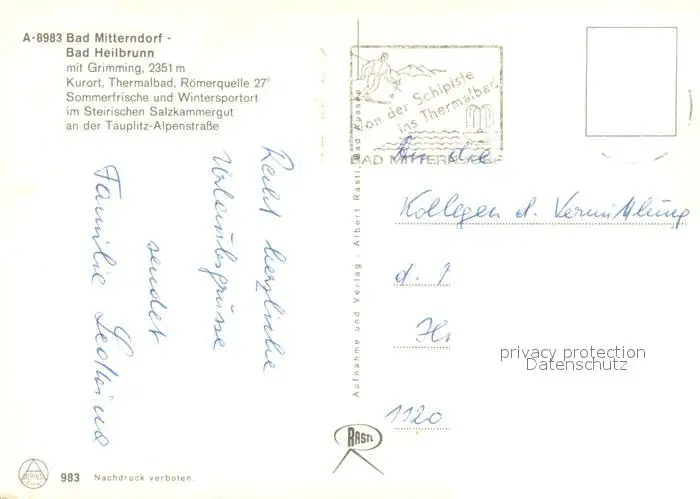 A-8983 Bad Mitterndorf -
Bad Heilbrunn
mit Grimming, 2351 m
Kurort, Thermalbad, Römerquelle 27°
Sommerfrische und Wintersportort
im Steirischen Salzkammergut
an der Tauplitz-Alpenstraße
Recht herzliche
Urlaubsgrüsse
sendet
Familie
983 Nachdruck verboten.
Aufnahme und Verlag: Albert Rastl, Bad Aussee
RASTL
Von der Schipiste
ins Thermalbad
BAD MITTERNDORF
An die
Kollegen d. Vermittlung
d.
1120
privacy protection
Datenschutz